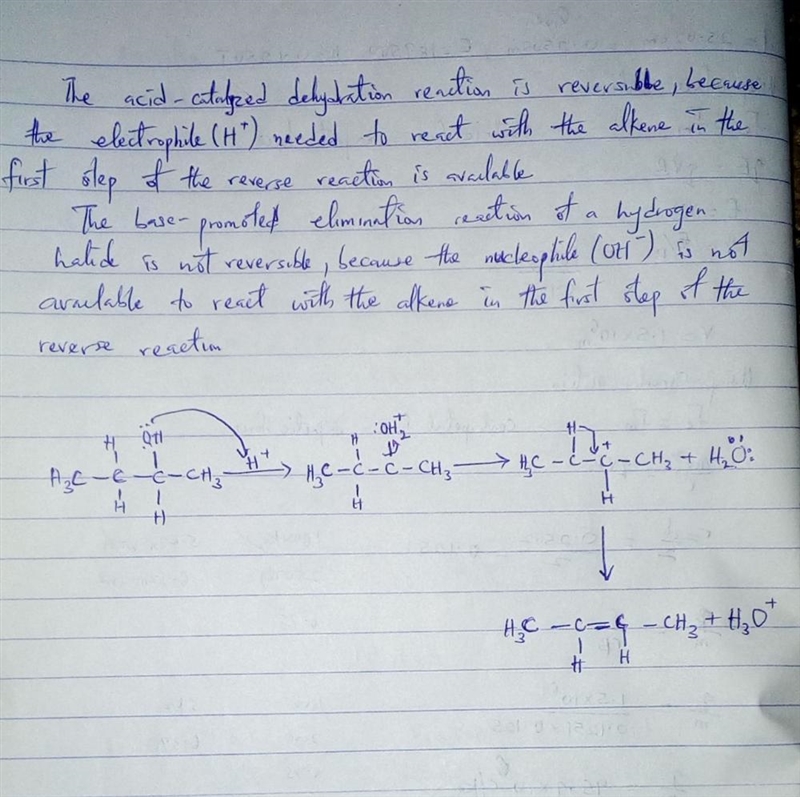 The acid-catalyzed dehydration reaction is reversible, because
the electrophile (H⁺) needed to react with the alkene in the
first step of the reverse reaction is available
The base-promoted elimination reaction of a hydrogen
halide is not reversible, because the nucleophile (OH⁻) is not
available to react with the alkene in the first step of the
reverse reaction
H :ÖH H :OH₂⁺ H
H₃C – C – C – CH₃ H⁺ H₃C – C – C – CH₃ H₃C – C – C⁺ – CH₃ + H₂O:
H H H H
H₃C – C = C – CH₃ + H₃O⁺
H H